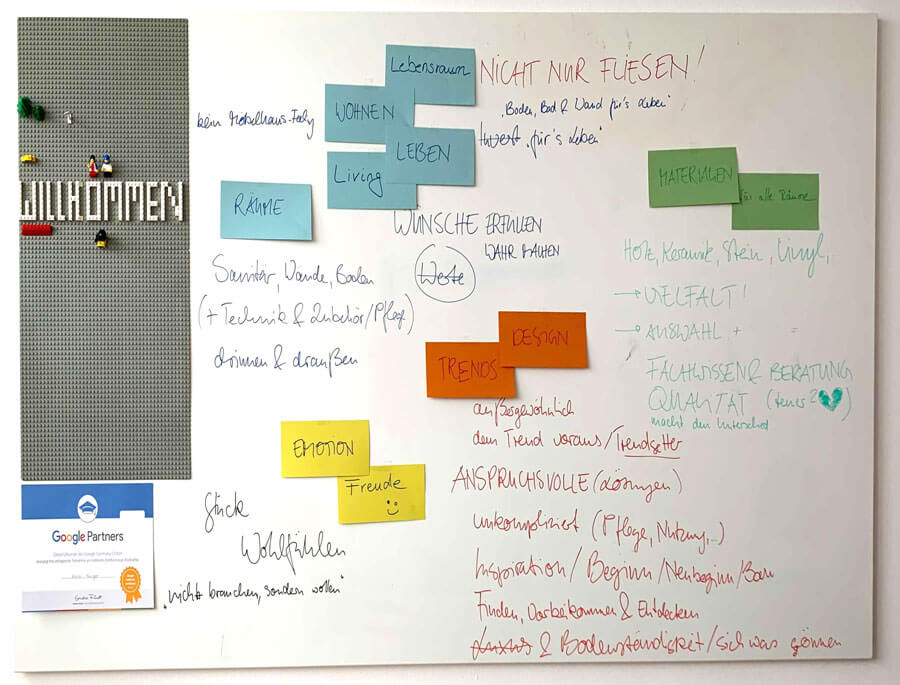 WILLKOMMEN
Google Partners
Lebensraum
WOHNEN
LEBEN
Living
RÄUME
NICHT NUR FLIESEN!
"Boden, Bad & Wand für's Leben"
"für's Leben"
kein Möbelhaus-
WÜNSCHE ERFÜLLEN
WAHR MACHEN
Werte
Sanitär, Wände, Boden
(+ Technik & Zubehör/Pflege)
drinnen & draußen
MATERIALIEN
für alle Räume
Holz, Keramik, Stein, Vinyl,
→ VIELFALT!
→ AUSWAHL + =
FACHWISSEN & BERATUNG
QUALITÄT (teures?)
macht den Unterschied
DESIGN
TRENDS
außergewöhnlich
dem Trend voraus/Trendsetter
ANSPRUCHSVOLLE (Lösungen)
unkompliziert (Pflege, Nutzung,..)
Inspiration/Beginn/Neubeginn/Bau
Finden, Vorbeikommen & Entdecken
Luxus & Bodenständigkeit/sich was gönnen
EMOTION
Freude
Glück
Wohlfühlen
"nicht brauchen, sondern wollen"